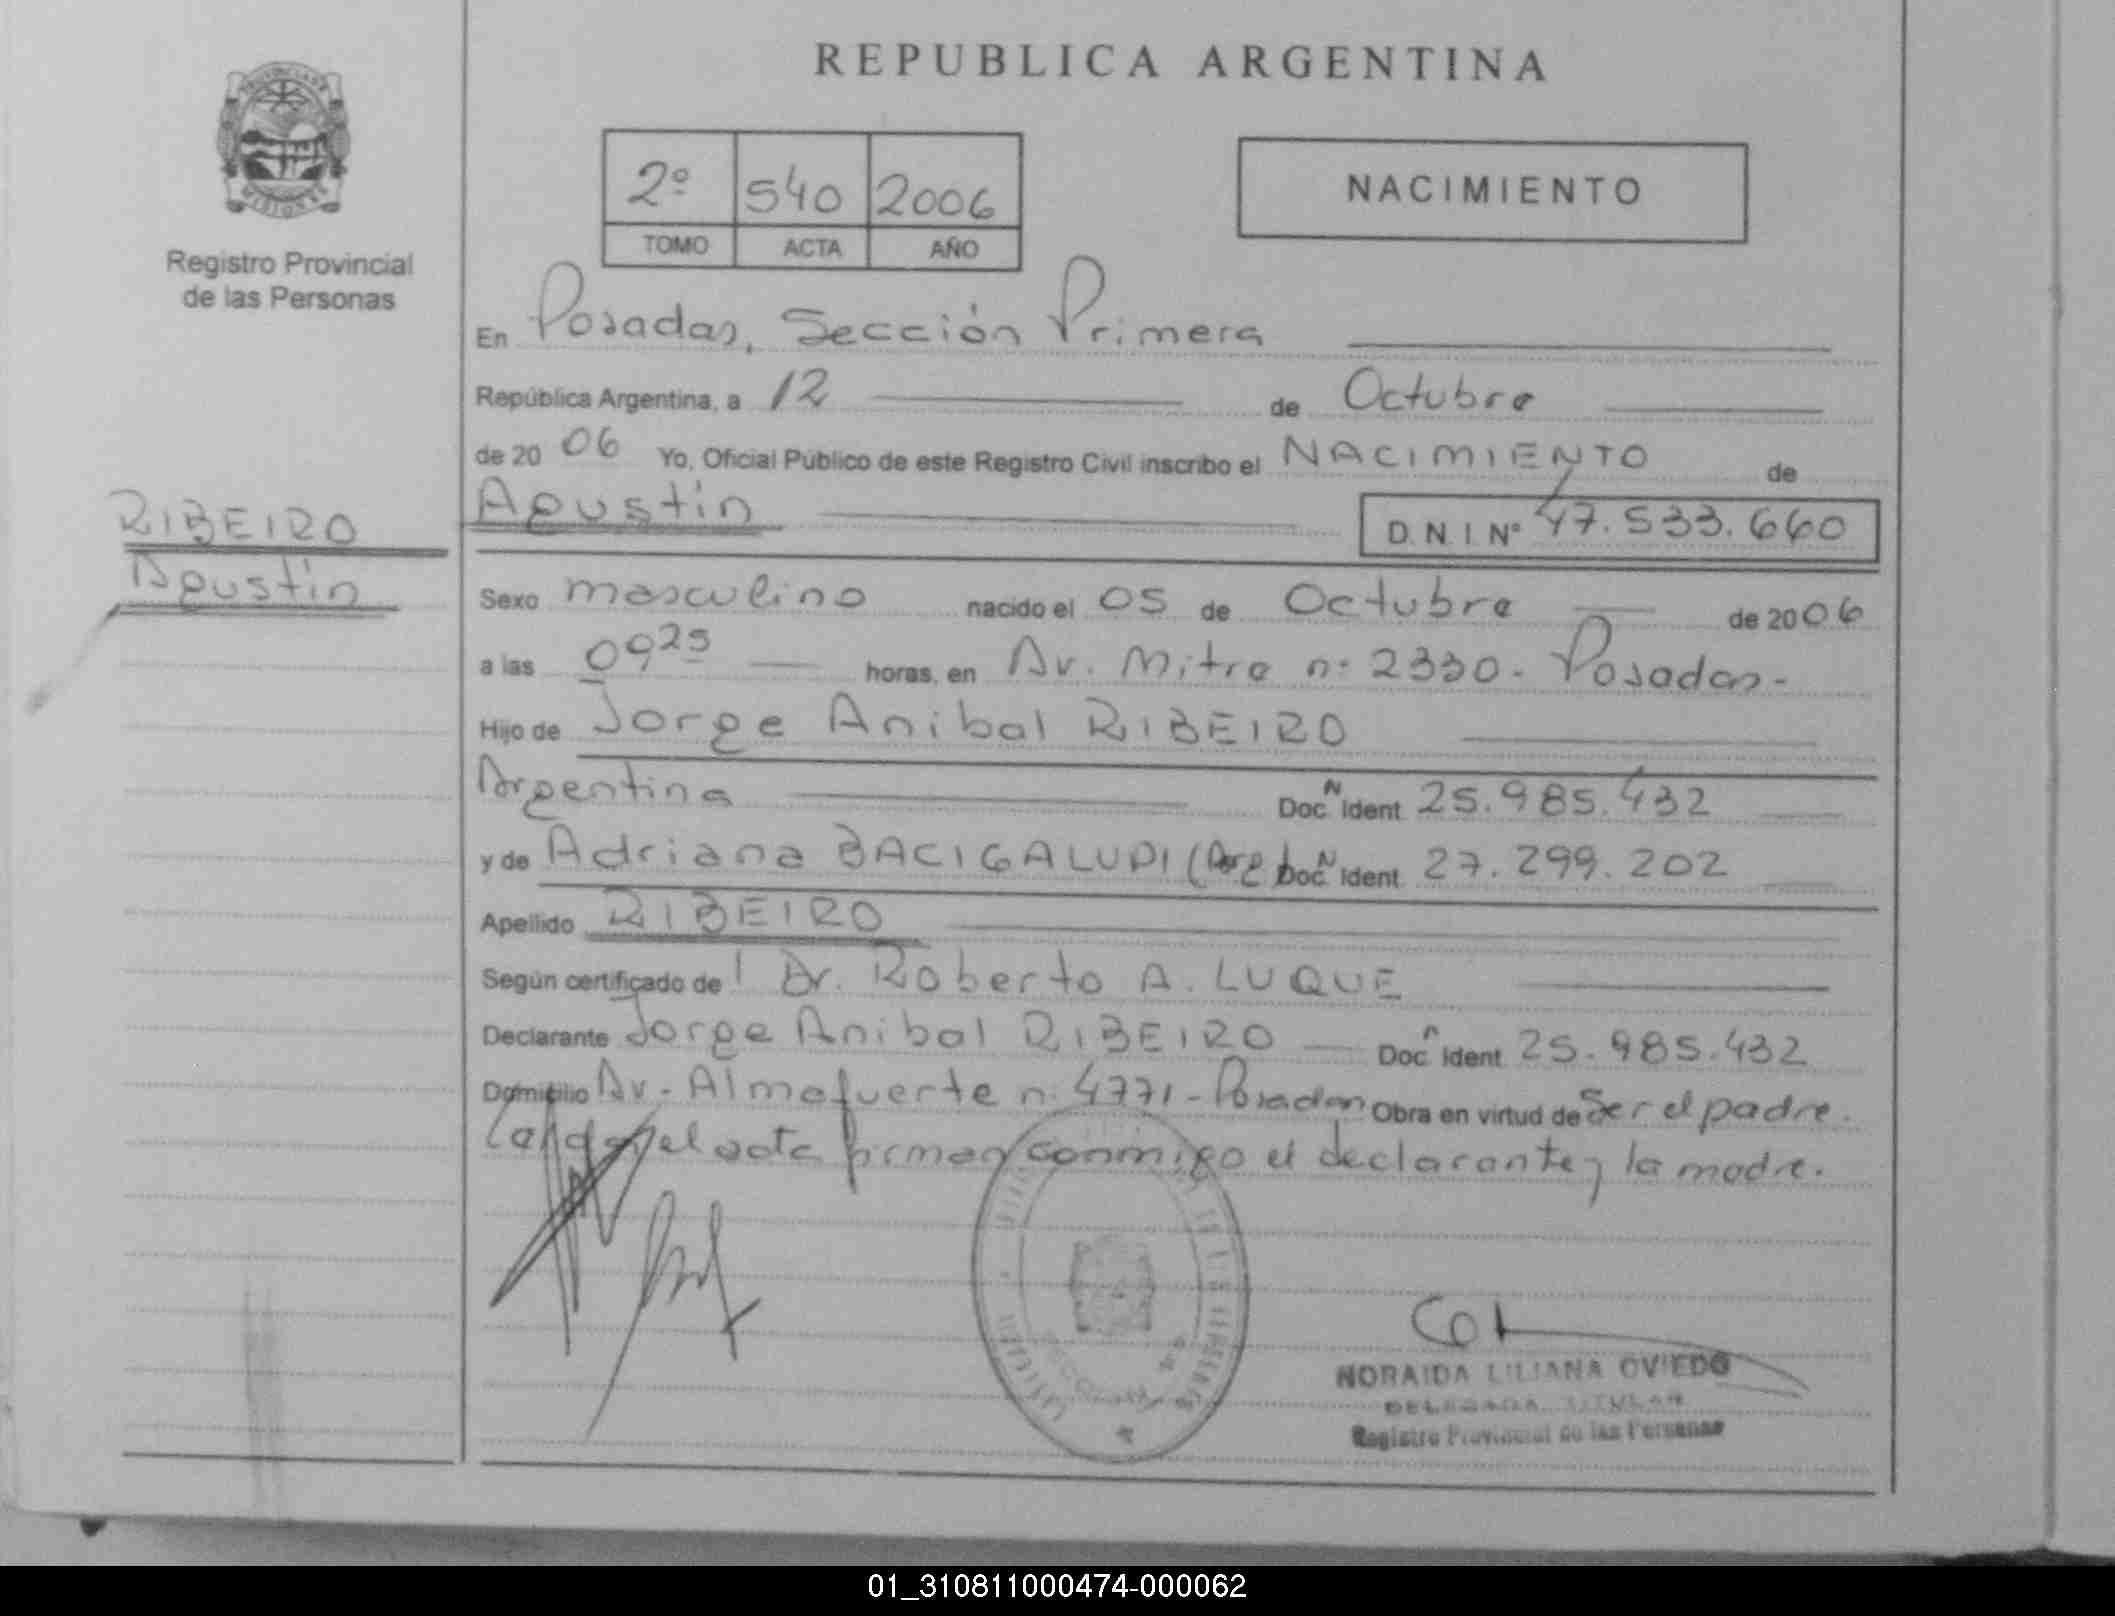 REPUBLICA ARGENTINA
PROVINCIA DE
MISIONES
Registro Provincial
de las Personas
2º 540 2006
TOMO ACTA AÑO
NACIMIENTO
En Posadas, Sección Primera
República Argentina, a 12 de Octubre
de 2006 Yo, Oficial Público de este Registro Civil inscribo el NACIMIENTO de
RIBEIRO
Agustin
Agustin D.N.I.Nº 47.533.660
Sexo masculino nacido el 05 de Octubre de 2006
a las 0925 horas, en Av. Mitre nº 2330- Posadas-
Hijo de Jorge Anibal RIBEIRO
Argentina Doc. N Ident. 25.985.432
y de Adriana BACIGALUPI (Arg) Doc. N Ident. 27.299.202
Apellido RIBEIRO
Según certificado de l Dr. Roberto A. LUQUE
Declarante Jorge Anibal RIBEIRO Doc. n Ident. 25.985.432
Domicilio Av. Almafuerte nº 4771-Posadas Obra en virtud de Ser el padre.
el acta firman conmigo el declarante y la madre.
NORAIDA LILIANA OVIEDO
DELEGADA TITULAR
Registro Provincial de las Personas
01_310811000474-000062